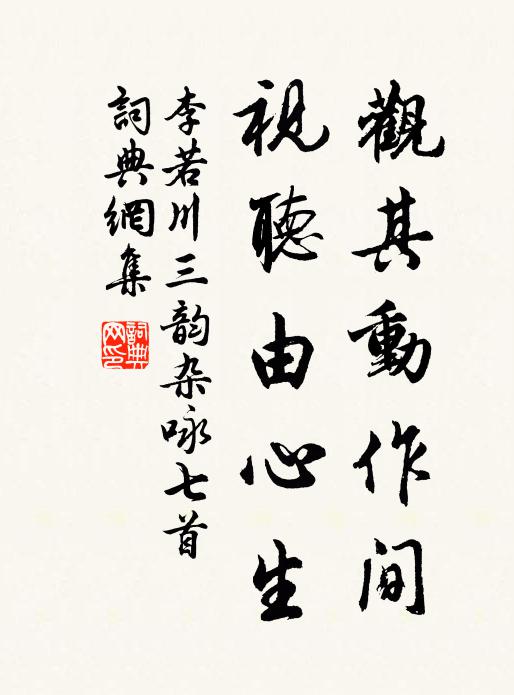 觀其動作間
視聽由心生
李若川三韵杂咏七首
詞典網集
詞典網印